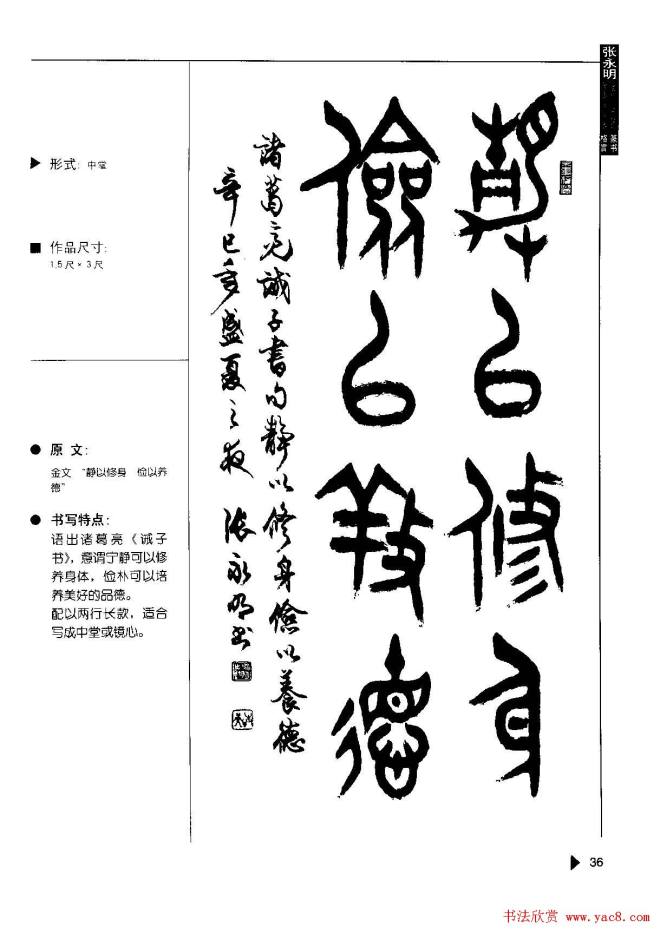 张永明
篆书
格言
▶ 形式：中堂
■ 作品尺寸：
1.5尺×3尺
● 原文：
金文 “静以修身 俭以养
德”
● 书写特点：
语出诸葛亮《诫子
书》，意谓宁静可以修
养身体，俭朴可以培
养美好的品德。
配以两行长款，适合
写成中堂或镜心。
靜㠯修身
儉㠯養德
諸葛亮誡子書句靜以修身儉以養德
辛巳年盛夏之夜 张永明书
▶ 36
书法欣赏 www.yac8.com